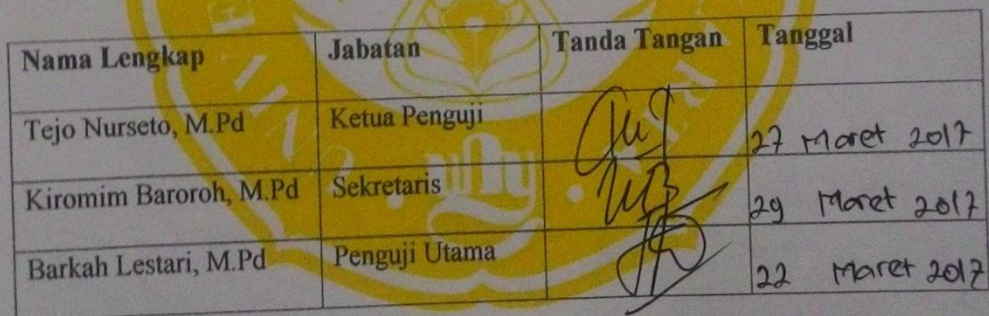 Nama Lengkap Jabatan Tanda Tangan Tanggal
Tejo Nurseto, M.Pd Ketua Penguji 27 Maret 2017
Kiromim Baroroh, M.Pd Sekretaris 29 Maret 2017
Barkah Lestari, M.Pd Penguji Utama 22 Maret 2017